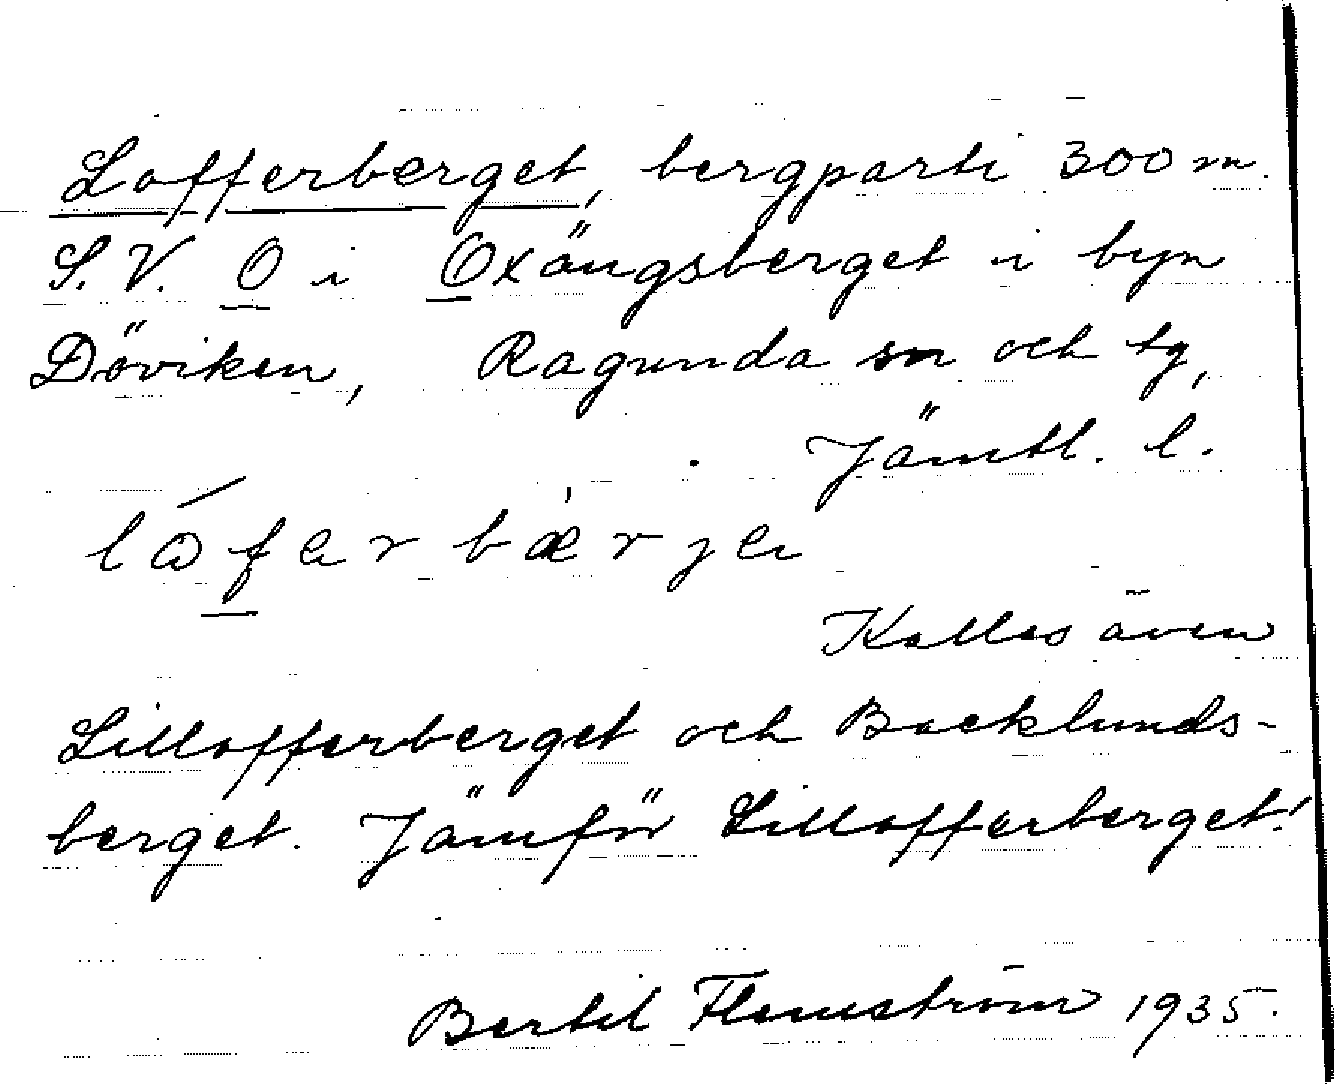 Lofferberget, bergparti 300 m.
S.V. O i Oxängsberget i byn
Döviken, Ragunda sn och tg,
Jämtl. l.
Kallas även
Lillofferberget och Backlunds-
berget. Jämför Lillofferberget!
Bertil Flemström 1935.